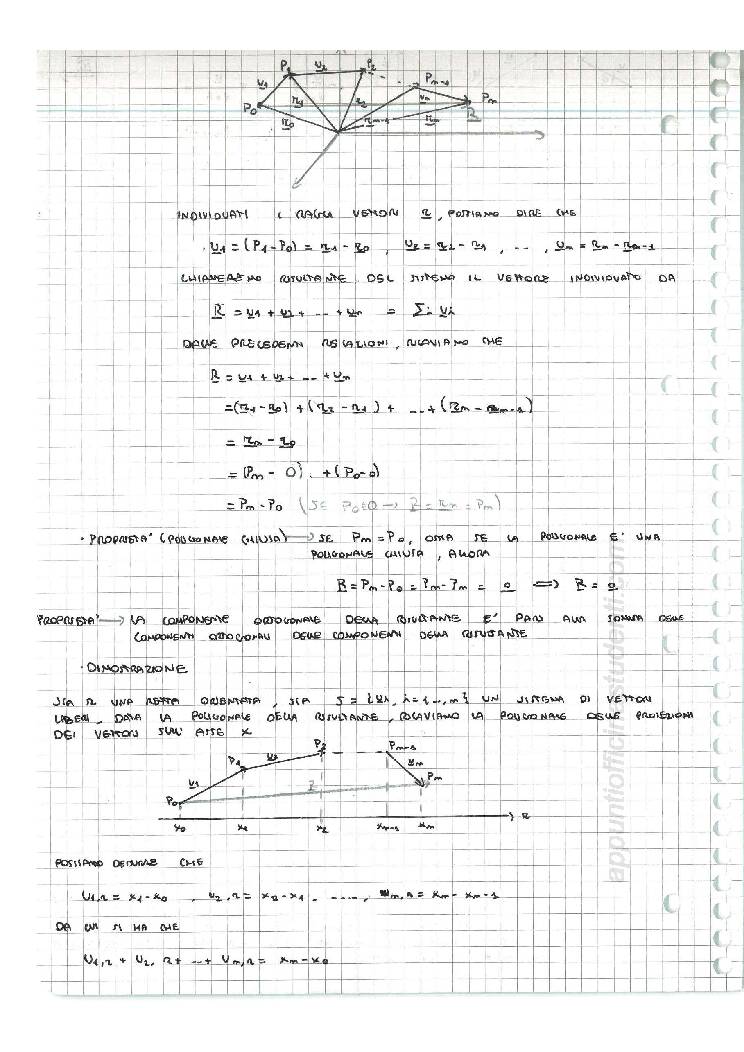 P1 u2 P2 Pm-1
u1 r1 r2 um Pm
P0 r0 rm-1 rm R
INDIVIDUATI I RAGGI VETTORI r, POSSIAMO DIRE CHE
u1 = (P1-P0) = r1 - r0 , u2 = r2 - r1 , .. , um = rm - rm-1
CHIAMEREMO RISULTANTE DEL SISTEMA IL VETTORE INDIVIDUATO DA
R = u1 + u2 + ... + um = Σi ui
DALLE PRECEDENTI RELAZIONI, RICAVIAMO CHE
R = u1 + u2 + ... + um
=(r1 - r0) + (r2 - r1) + ...+ (rm - rm-1)
= rm - r0
= (Pm - O) . + (P0-O)
= Pm - P0 (SE P0≡O → R = rm = Pm)
· PROPRIETA' (POLIGONALE CHIUSA) → SE Pm = P0, OSSIA SE LA POLIGONALE E' UNA
POLIGONALE CHIUSA, ALLORA
R = Pm - P0 = Pm - Pm = 0 ⟺ R = 0
PROPRIETA' → LA COMPONENTE ORTOGONALE DELLA RISULTANTE E' PARI ALLA SOMMA DELLE
COMPONENTI ORTOGONALI DELLE COMPONENTI DELLA RISULTANTE
· DIMOSTRAZIONE
SIA r UNA RETTA ORIENTATA, SIA S = {ui, i=1...,m} UN SISTEMA DI VETTORI
LIBERI, DATA LA POLIGONALE DELLA RISULTANTE, RICAVIAMO LA POLIGONALE DELLE PROIEZIONI
DEI VETTORI SULL' ASSE x
P1 u2 P2 Pm-1
u1 um Pm
P0 R
x0 x1 x2 xm-1 xm r
POSSIAMO DEDURRE CHE
U1,r = x1 - x0 , U2,r = x2 - x1 , ...., um,r = xm - xm-1
DA CUI SI HA CHE
U1,r + U2,r + ... + Um,r = xm - x0